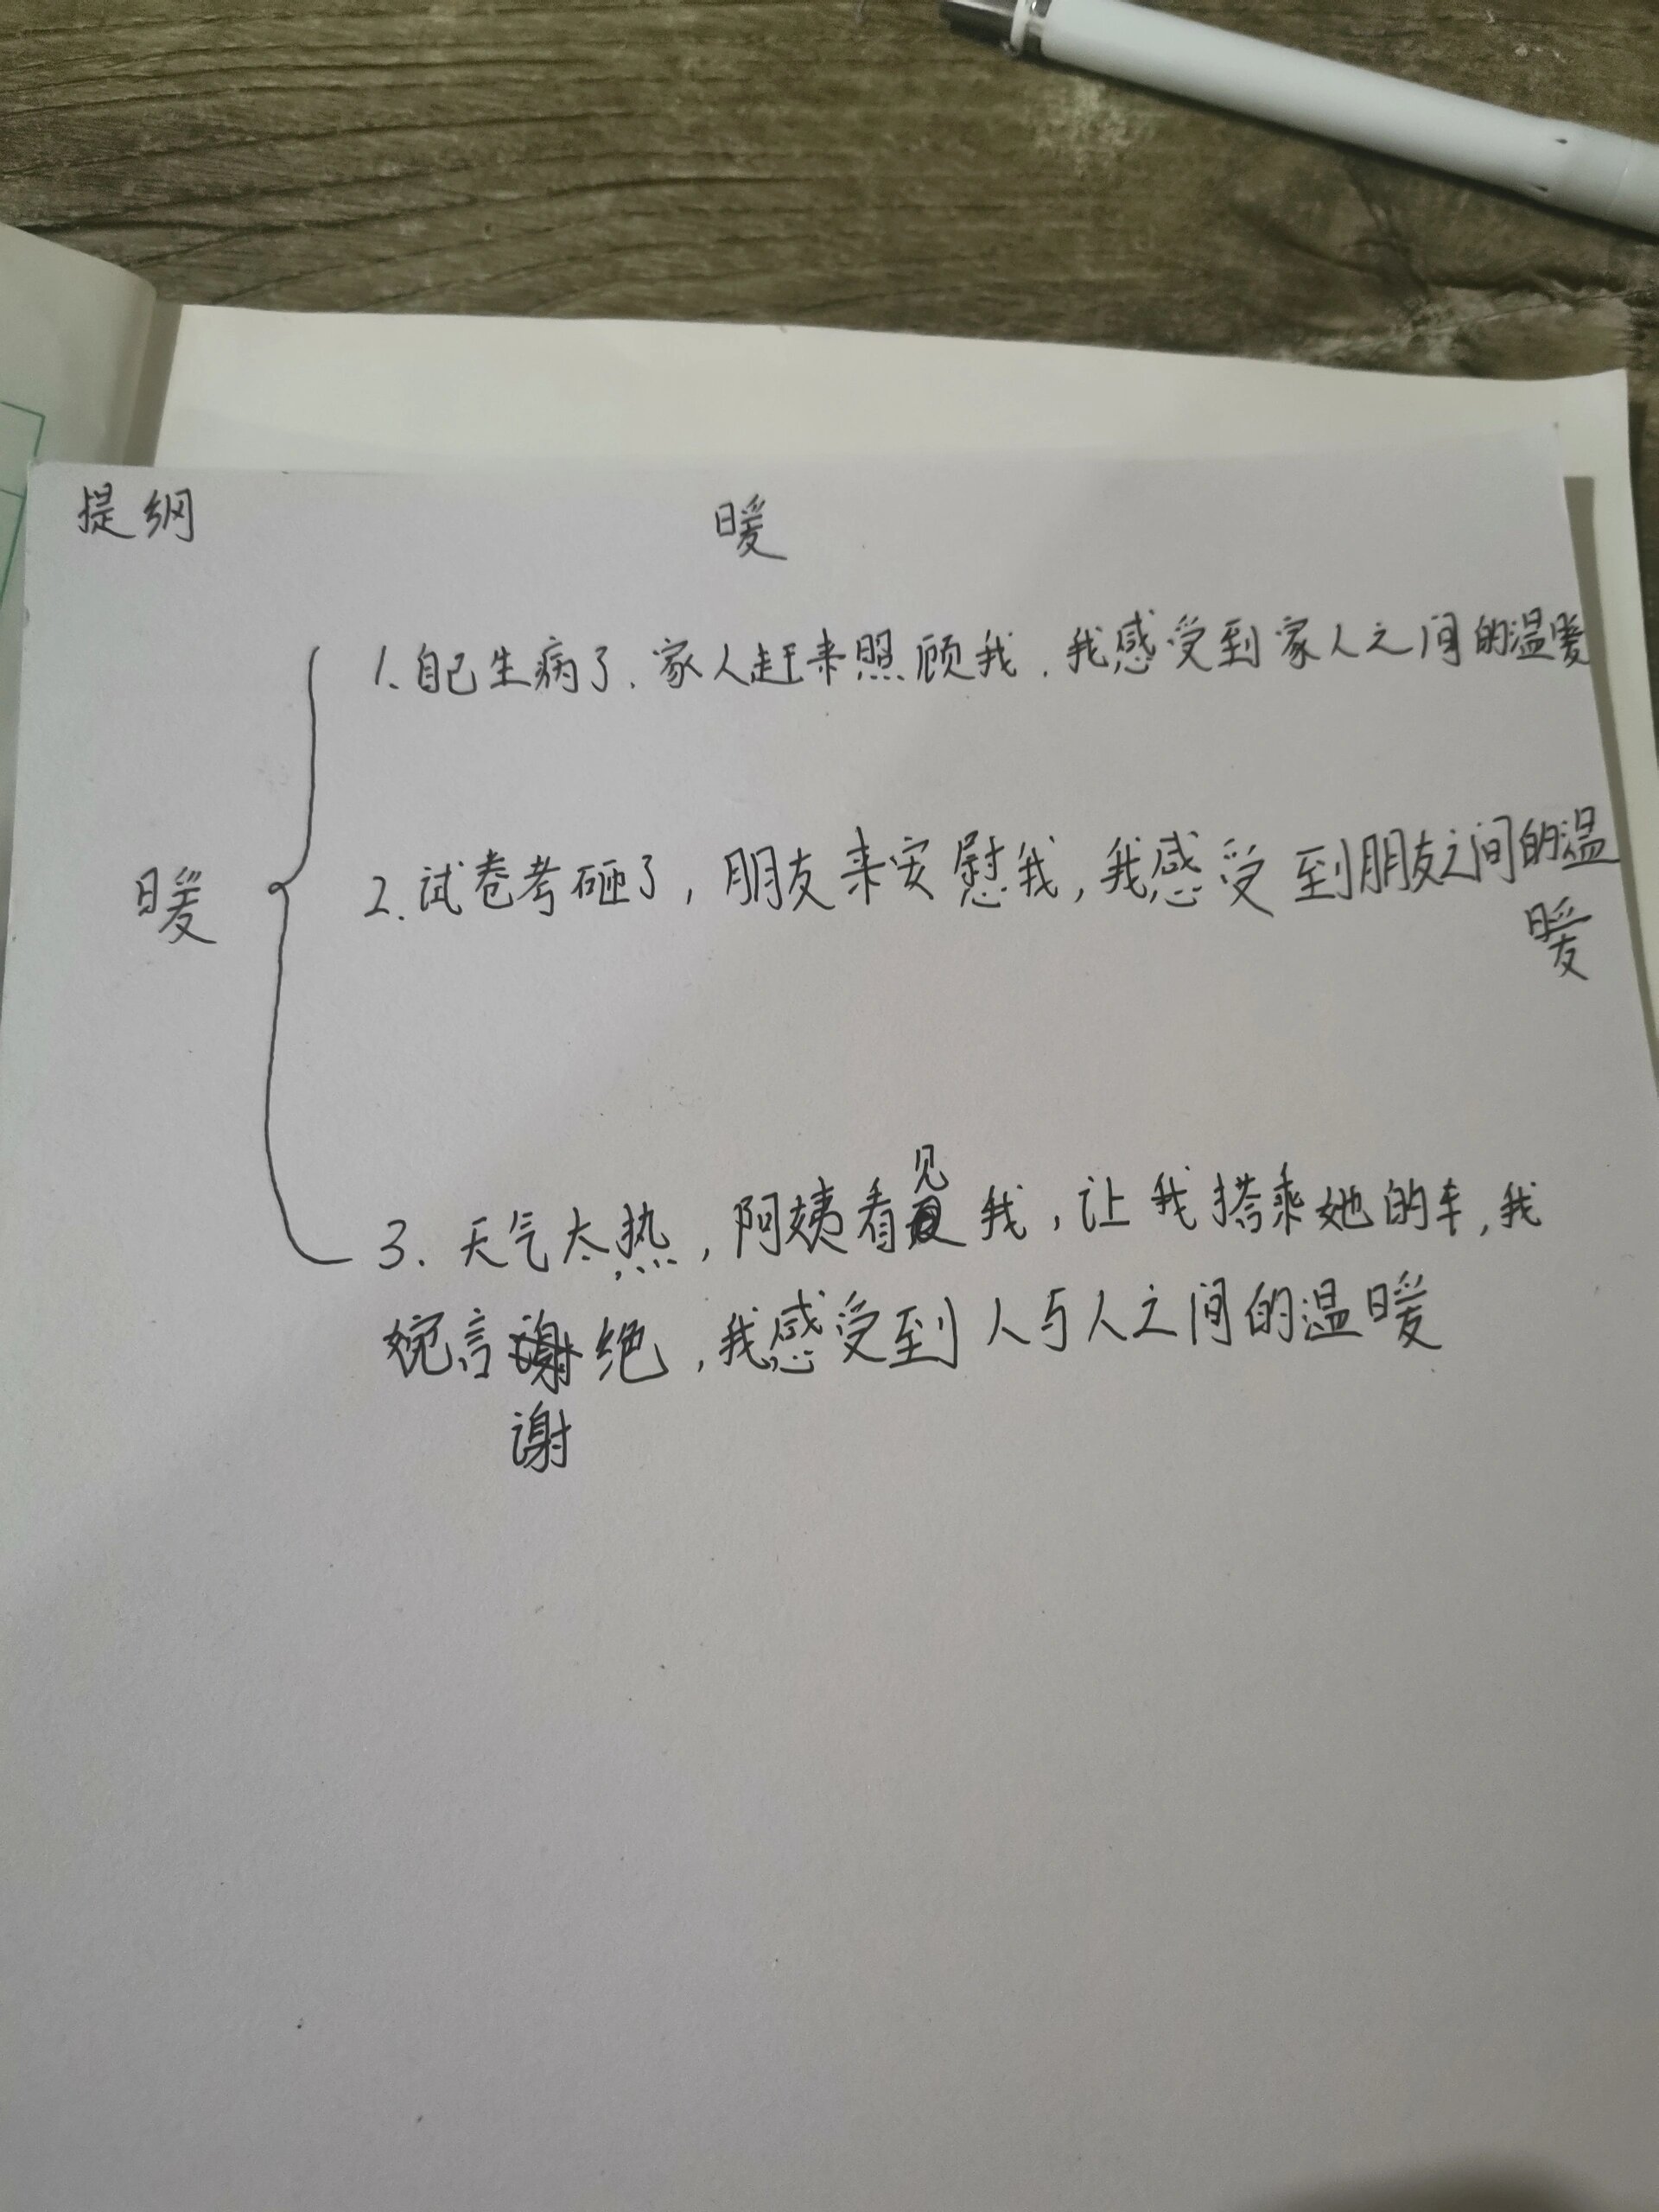 提纲
暖
暖
1.自己生病了.家人赶来照顾我.我感受到家人之间的温暖
2.试卷考砸了,朋友来安慰我,我感受到朋友之间的温
暖
见
3.天气太热,阿姨看我,让我搭乘她的车,我
婉言谢绝,我感受到人与人之间的温暖
谢